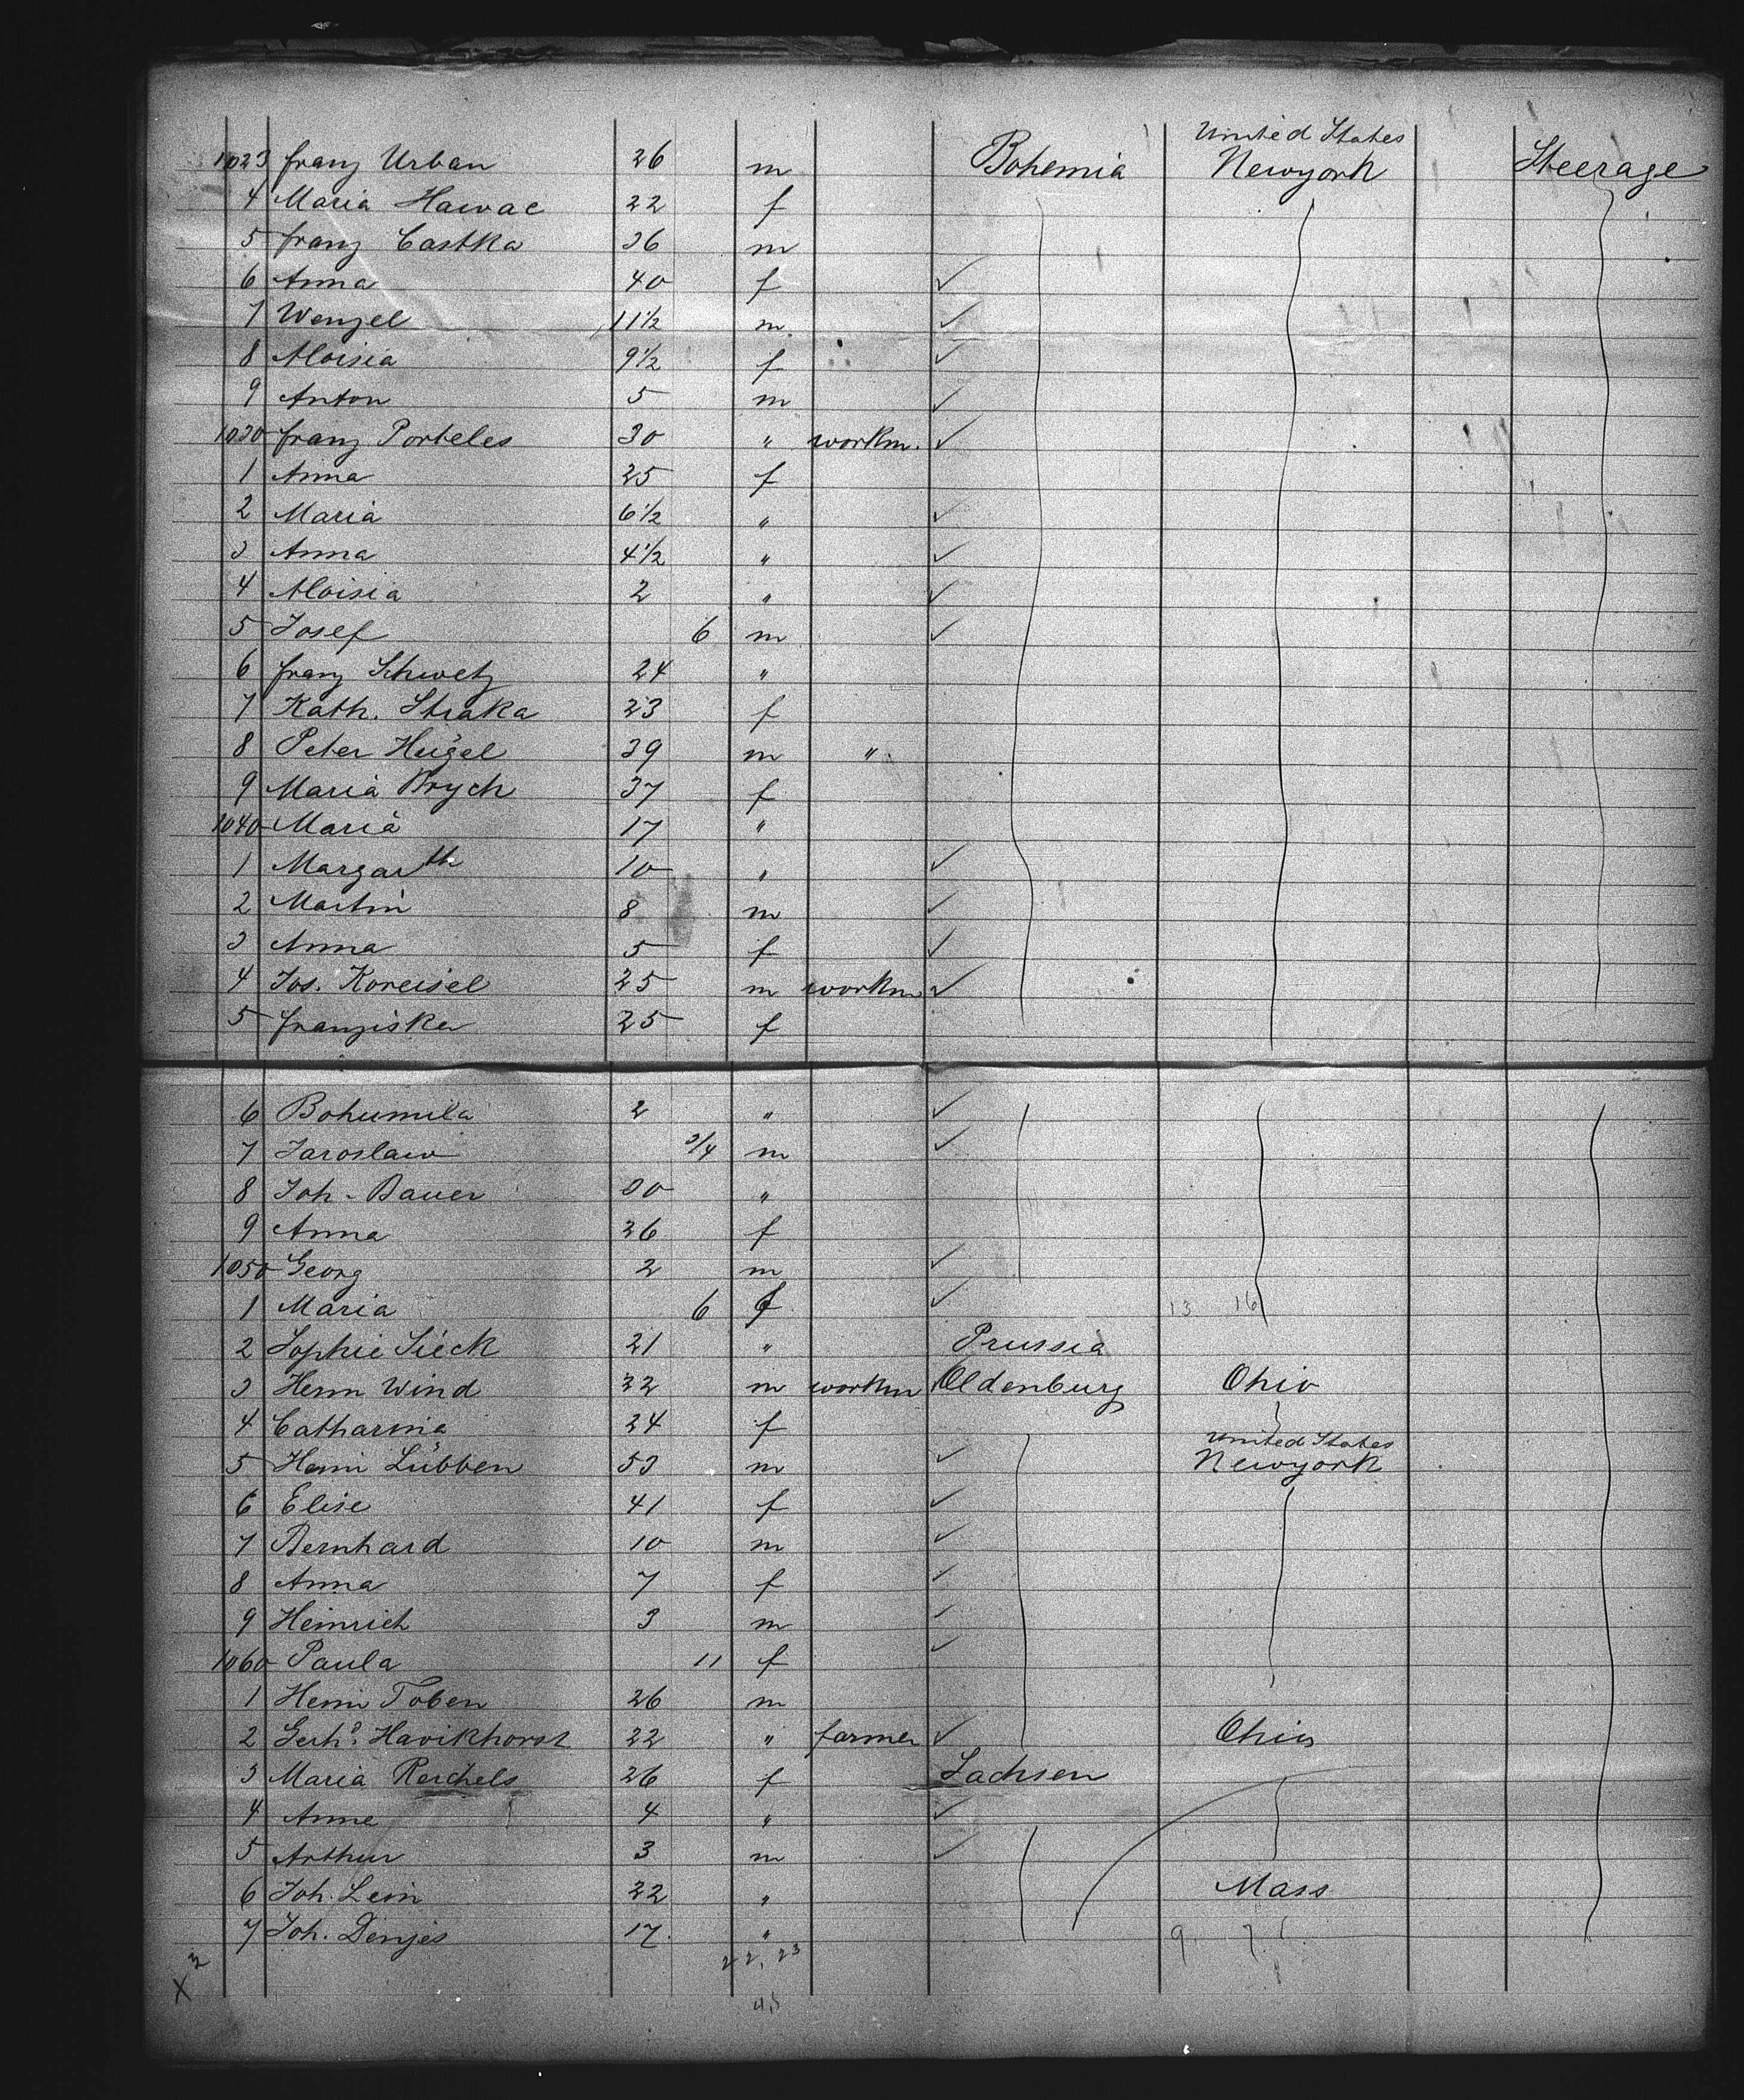 United States
1023 Franz Urban 26 m Bohemia Newyork Steerage
4 Maria Hawac 22 f
5 Franz Castka 36 m
6 Anna 40 f ✓
7 Wenzel 11 1/2 m ✓
8 Aloisia 9 1/2 f ✓
9 Anton 5 m ✓
1030 Franz Porteles 30 " workm. ✓
1 Anna 25 f
2 Maria 6 1/2 " ✓
3 Anna 4 1/2 " ✓
4 Aloisia 2 " ✓
5 Josef 6 m ✓
6 Franz Schwetz 24 "
7 Kath. Straka 23 f
8 Peter Hügel 39 m "
9 Maria Brych 37 f
1040 Maria 17 "
1 Margarth 10 " ✓
2 Martin 8 m ✓
3 Anna 5 f ✓
4 Jos. Koreisel 25 m workm ✓
5 Franziska 25 f
6 Bohumila 2 " ✓
7 Jaroslaw 3/4 m ✓
8 Joh. Bauer 30 "
9 Anna 26 f
1050 Georg 2 m ✓
1 Maria 6 f ✓ 13 16
2 Sophie Sieck 21 " Prussia
3 Herm Wind 22 m workm Oldenburg Ohio
4 Catharina 24 f
United States
5 Henri Lübben 53 m ✓ Newyork
6 Elise 41 f ✓
7 Bernhard 10 m ✓
8 Anna 7 f ✓
9 Heinrich 3 m ✓
1060 Paula 11 f ✓
1 Henri Toben 26 m
2 Gerhd. Havikhorst 22 " farmer ✓ Ohio
3 Maria Reichels 26 f Sachsen
4 Anne 4 " ✓
5 Arthur 3 m ✓
6 Joh. Lein 22 " Mass
7 Joh. Dinjes 17. "
22. 23
X 2
45